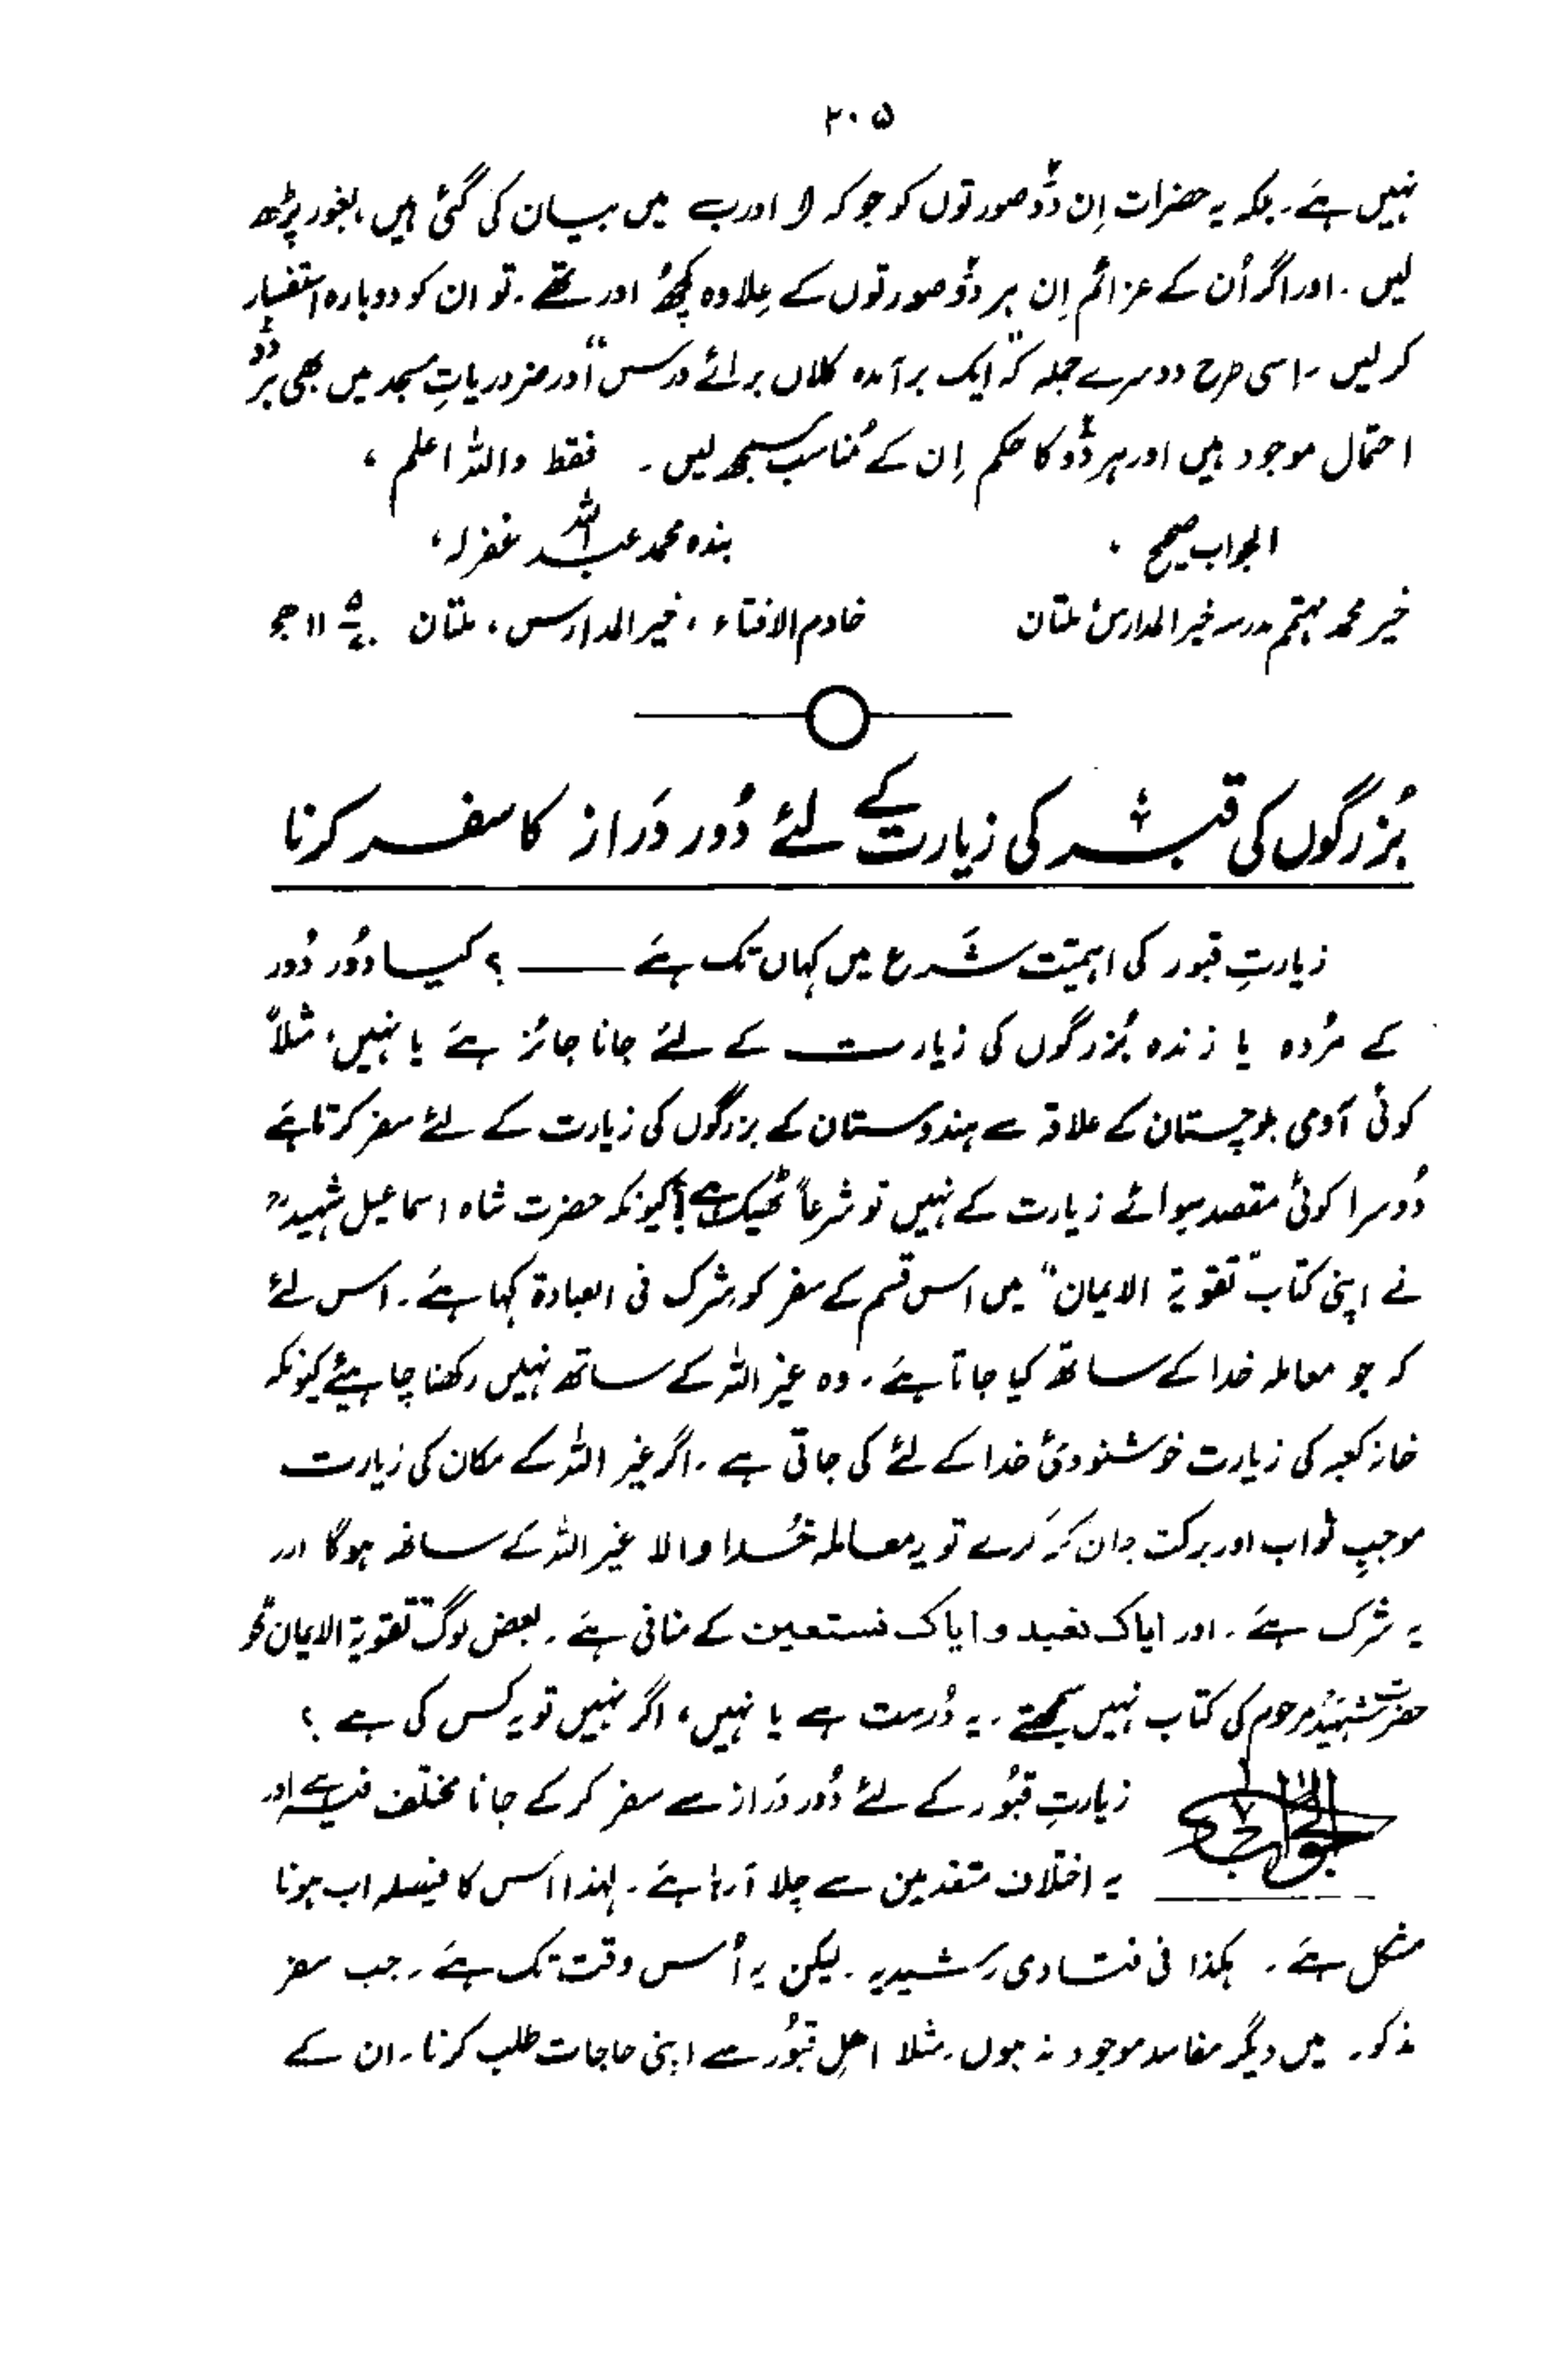 ۲۰۵
نہیں ہے۔ بلکہ یہ حضرات اِن دوؔ صورتوں کو جو کہ ا اور ب میں بیان کی گئی ہیں، بغور پڑھ
لیں۔ اور اگر اُن کے عزائم اِن ہر دوؔ صورتوں کے عِلاوہ کچھُ اور تھے۔ تو ان کو دوبارہ استفسار
کر لیں۔ اسی طرح دوسرے جملہ کہ "ایک برآمدہ کلاں برائے درس" اور ضروریاتِ مسجد میں بھی ہر دوؔ
احتمال موجود ہیں اور ہر دوؔ کا حکم اِن کے مُناسب سمجھ لیں۔ فقط واللہ اعلم ،
الجواب صحیح ، بندہ محمد عبد اللہ غفرلہ،
خیر محمد مہتمم مدرسہ خیر المدارس ملتان خادم الافتاء ، خیر المدارس ، ملتان
بُزرگوں کی قبر کی زیارت کے لئے دُور دَراز کا سفر کرنا
زیارتِ قبور کی اہمیّت شَرع میں کہاں تک ہے —— ؟ کیا دوُر دُور
کے مُردہ یا زندہ بُزرگوں کی زیارت کے لئے جانا جائز ہے یا نہیں، مثلاً
کوئی آدمی بلوچستان کے علاقہ سے ہندوستان کے بزرگوں کی زیارت کے لئے سفر کرتا ہے
دُوسرا کوئی مقصد سوائے زیارت کے نہیں تو شرعاً ٹھیک ہے؟ کیونکہ حضرت شاہ اسماعیل شہیدؒ
نے اپنی کتاب "تقویۃ الایمان" میں اس قسم کے سفر کو شرک فی العبادۃ کہا ہے۔ اس لئے
کہ جو معاملہ خدا کے ساتھ کیا جاتا ہے۔ وہ غیر اللہ کے ساتھ نہیں رکھنا چاہیئے کیونکہ
خانہ کعبہ کی زیارت خوشنودیٔ خدا کے لئے کی جاتی ہے۔ اگر غیر اللہ کے مکان کی زیارت
موجبِ ثواب اور برکت جان کر کرے تو یہ معاملہ خُدا والا غیر اللہ کے ساتھ ہوگا اور
یہ شرک ہے۔ اور ایاک نعبد و ایاک نستعین کے منافی ہے۔ بعض لوگ "تقویۃ الایمان" کو
حضرت شہیدؒ مرحوم کی کتاب نہیں کہتے۔ یہ دُرست ہے یا نہیں، اگر نہیں تو یہ کس کی ہے ؟
الجواب زیارتِ قبُور کے لئے دُور دَراز سے سفر کر کے جانا مختلف فیہ ہے اور
یہ اختلاف متقدمین سے چلا آرہا ہے۔ لہٰذا اس کا فیصلہ اب ہونا
مشکل ہے۔ ہکذا فی فتاوی رشیدیہ۔ لیکن یہ اُس وقت تک ہے۔ جب سفر
مذکور میں دیگر مفاسد موجود نہ ہوں۔ مثلا اہلِ قبُور سے اپنی حاجات طلب کرنا۔ ان کے